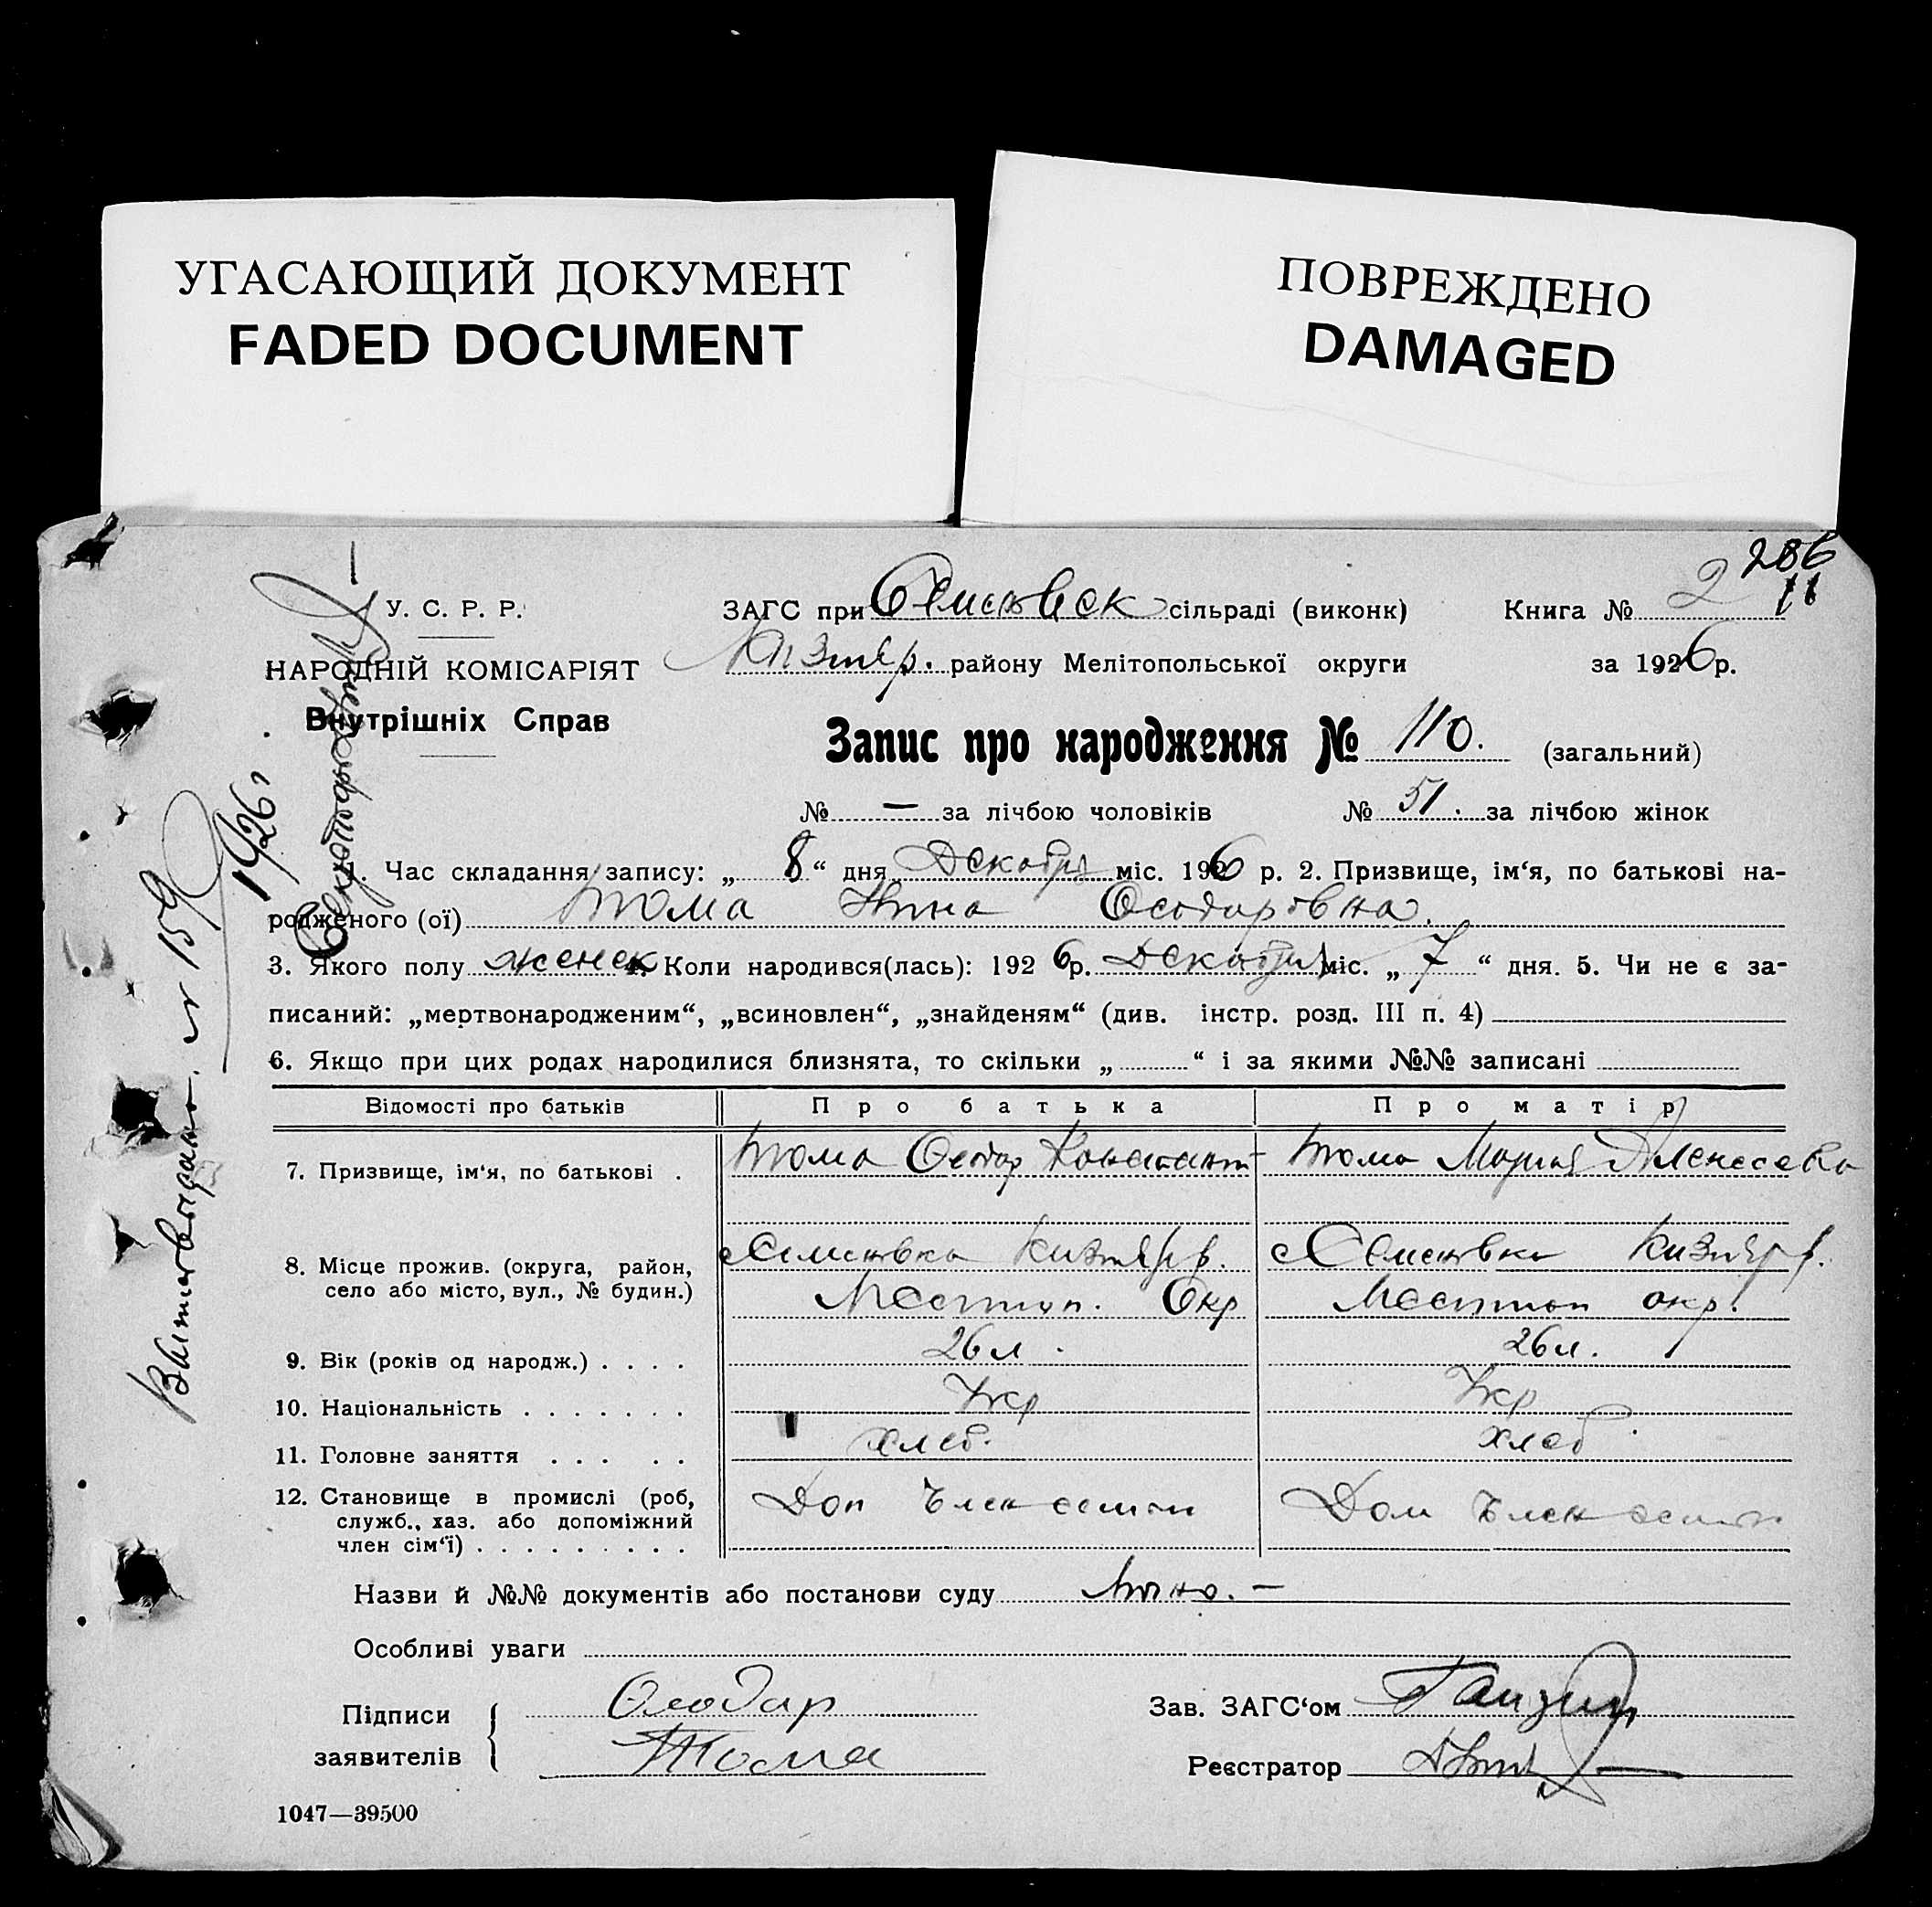 УГАСАЮЩИЙ ДОКУМЕНТ
FADED DOCUMENT
ПОВРЕЖДЕНО
DAMAGED
286
У. С. Р. Р.
НАРОДНІЙ КОМІСАРІЯТ
Внутрішніх Справ
ЗАГС при сільраді (виконк) Книга № 2
району Мелітопольської округи за 1926 р.
Запис про народження № 110. (загальний)
№ — за лічбою чоловіків № 51. за лічбою жінок
1. Час складання запису: „ 8 “ дня Декабря міс. 1926 р. 2. Призвище, ім‘я, по батькові на-
родженого (ої) Тома Нина Феодоровна.
3. Якого полу женск 4. Коли народився(лась): 1926 р. Декабря міс. „ 7 “ дня. 5. Чи не є за-
писаний: „мертвонародженим“, „всиновлен“, „знайденям“ (див. інстр. розд. III п. 4)
6. Якщо при цих родах народилися близнята, то скільки „ “ і за якими №№ записані
Відомості про батьків Про батька Про матір
7. Призвище, ім‘я, по батькові . Тома Феодор Константи Тома Мария Алексеевна
8. Місце прожив. (округа, район,
село або місто, вул., № будин.)
Мелитоп. Окр Мелитоп окр.
9. Вік (років од народж.) . . . . 26 л. 26 л.
10. Національність . . . . . . . Укр Укр
11. Головне заняття . . . . . хлеб. хлеб
12. Становище в промислі (роб,
служб., хаз. або допоміжний
член сім‘ї) . . . . . . . . .
Доп Член семьи Доп Член семьи
Назви й №№ документів або постанови суду
Особливі уваги
Підписи
заявителів
Феодор
Тома
Зав. ЗАГС‘ом
Реєстратор
1047—39500
№ 159
1926 г.